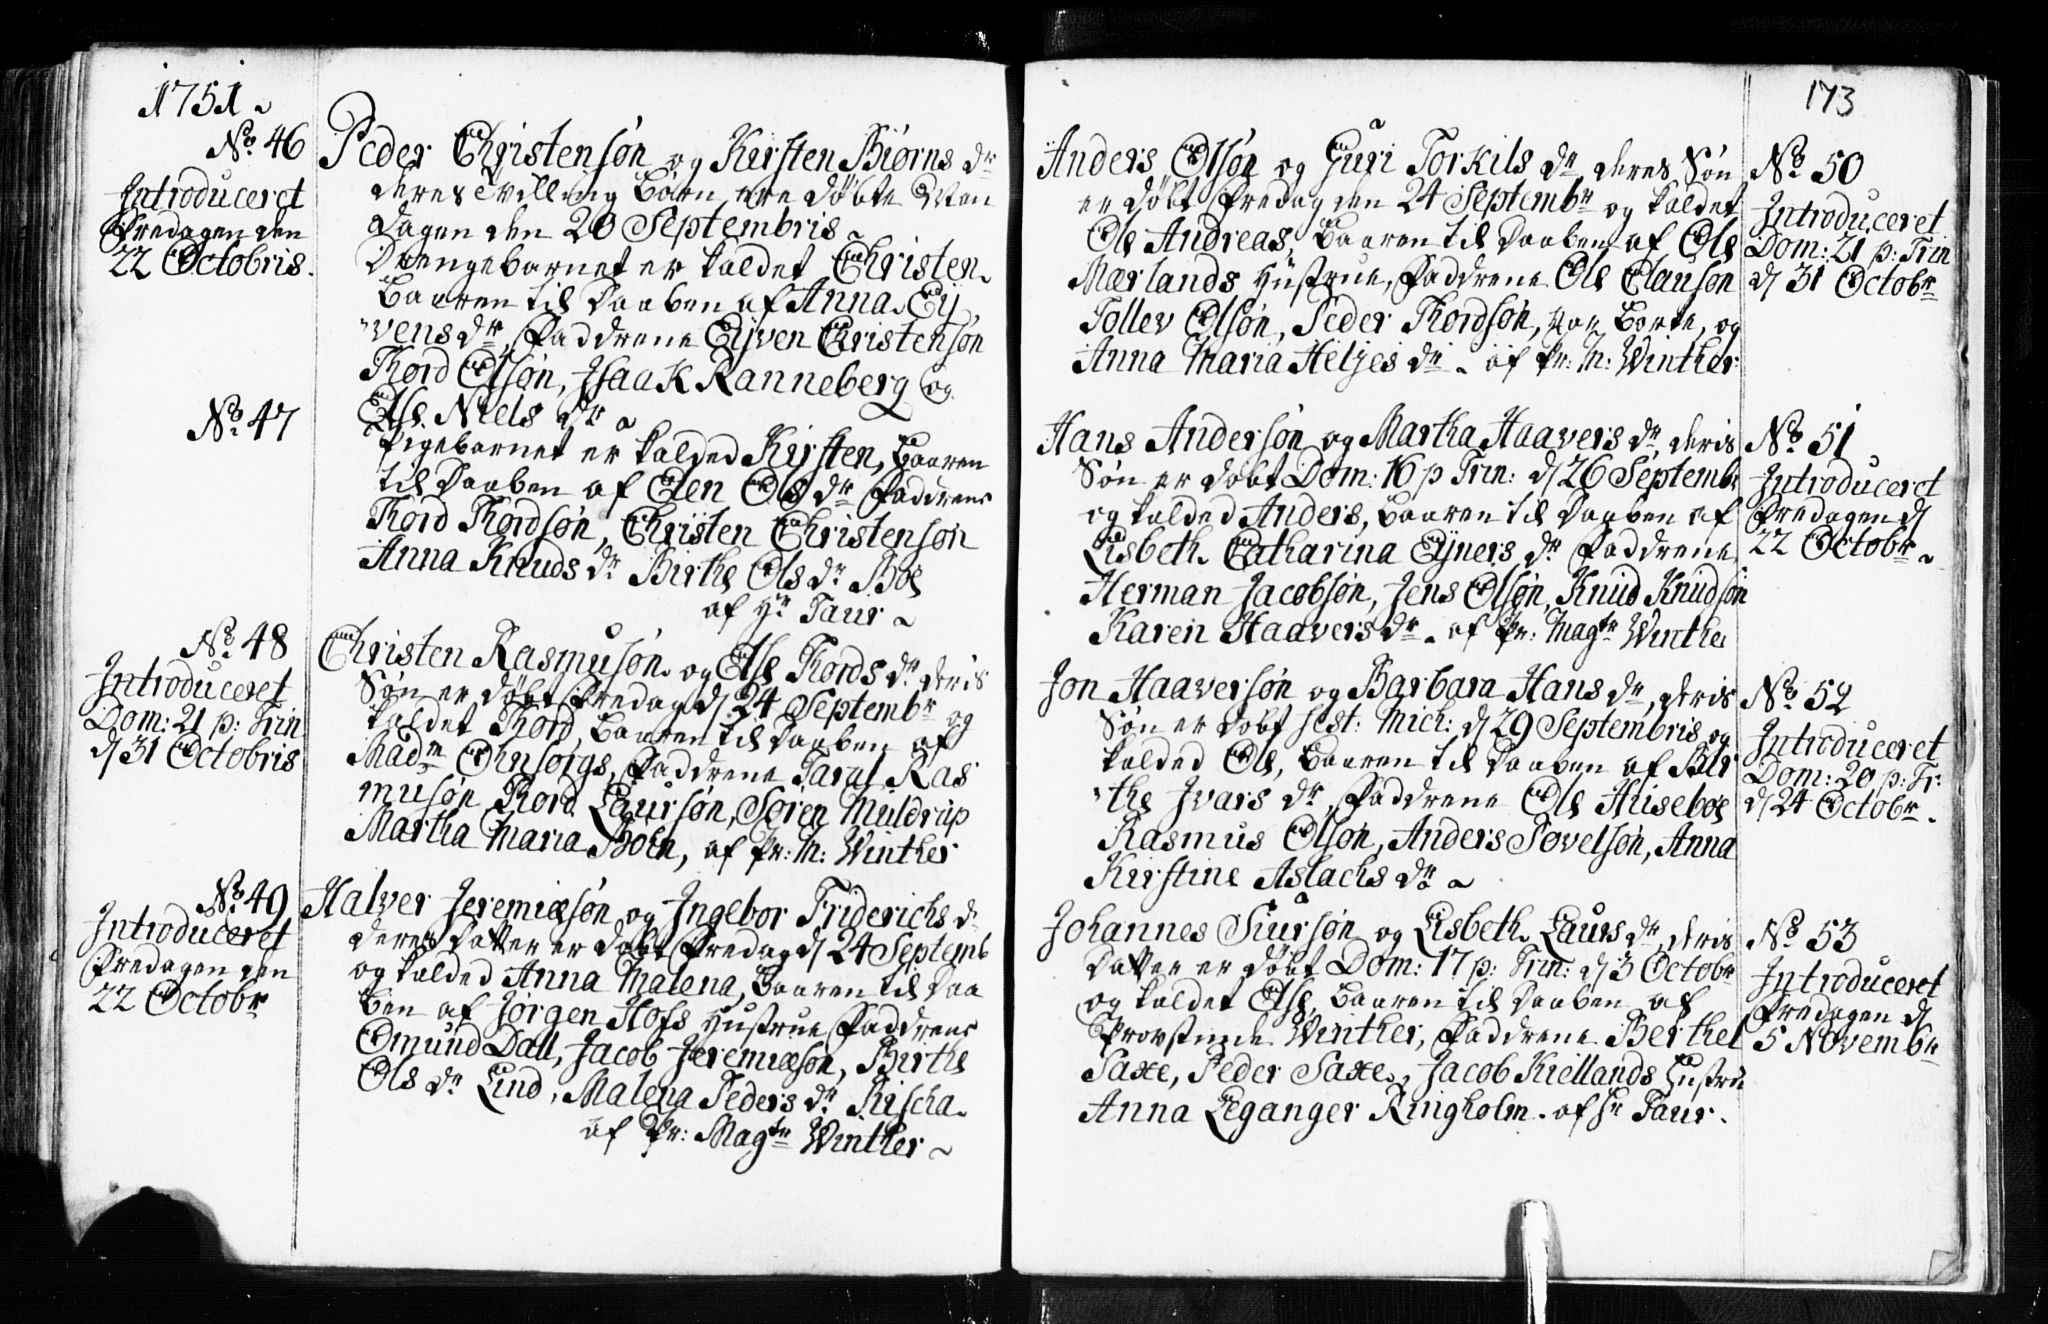 1751
No. 46
Introduceret
Fredagen den
22 Octobris.
Peder Christensøn og Kirsten Biørns dr
deres Tvilling Børn, ere døbte
dagen den 20 Septembris
Drengebarnet er kaldet Christen
Baaren til Daaben af Anna Eij
vens dr, Faddrene Eijven Christensøn
Thord Olsøn, Jsaak Ranneberg og
Else Niels dr
No. 47
Pigebarnet er kalded Kirsten, Baaren
til Daaben af Elen Ols dr Faddrene
Thord Thordsøn, Christen Christensøn
Anna Knuds dr Birthe Ols dr Bøe
af Hr Taur
No. 48
Introduceret
Dom: 21 p: Trin
d 31 Octobris
Christen Rasmusøn og Else Thords dr deris
Søn er døbt Fredag d 24 Septembr og
kaldet Thord, Baaren til Daaben af
Madm Ohnsorgs, Faddrene Taral Ras
musøn Thord Laursøn, Søren Muldrup
Martha Maria Boen, af Pr: M: Winther
No. 49
Introduceret
Fredagen den
22 Octobr
Halver Jeremiæsøn og Ingebor Friderichs dr
deres Datter er døbt Fredag d 24 Septemb
og kalded Anna Malena, Baaren til Daa
ben af Jørgen Hofs Hustrue Faddrene
Omund Dall, Jacob Jeremiæsøn, Birthe
Ols dr Lind, Malena Peders dr Rischa
af Pr: Magtr Winther
173
Anders Olsøn og Guri Torkils dr, deres Søn
er døbt Fredag den 24 Septembr og kaldet
Ole Andreas, Baaren til Daaben af Ole
Mærlands Hustrue, Faddrene Ole Olansøn
Tollev Olsøn, Peder Thordsøn, var Borte, og
Anna Maria Heljes dr af Pr: M: Winther
No 50
Introduceret
Dom: 21 p: Trin
d 31 Octobr
Hans Andersøn og Martha Haavers dr, deris
Søn er døbt Dom: 16 p Trin: d 26 Septembr
og kalded Anders, Baaren til Daaben af
Lisbeth Catharina Ejners dr Faddrene
Herman Jacobsøn, Jens Olsøn, Knud Knudsøn
Karen Haavers dr af Pr: Magtr Winthe
No 51
Introduceret
Fredagen d
22 Octobr
Jon Haaversøn og Barbara Hans dr, deris
Søn er døbt fest: Mich: d 29 Septembris og
kalded Ole, Baaren til Daaben af Bir
the Jvars dr, Faddrene Ole Husebøe
Rasmus Olsøn, Anders Tovelsøn, Anna
Kirstine Aslachs dr
No 52
Introduceret
Dom: 20 p: Tr:
d 24 Octobr
Johannes Siursøn og Lisbeth Laurs dr, deris
Datter er døbt Dom: 17 p: Trin: d 3 Octobr
og kaldet Else, Baaren til Daaben af
Provstinde Winther, Faddrene Berthel
Saxe, Peder Saxe, Jacob Kiellands Hustru
Anna Leganger Ringholm. af Hr Taur.
No 53
Introduceret
Fredagen d
5 Novembr